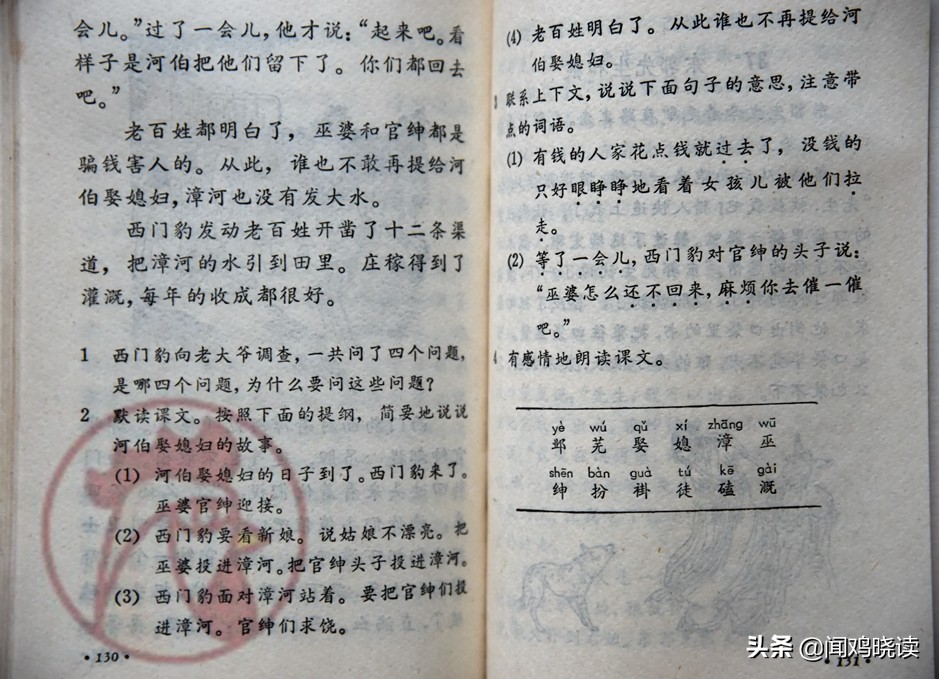 会儿。”过了一会儿，他才说：“起来吧。看
样子是河伯把他们留下了。你们都回去
吧。”
老百姓都明白了，巫婆和官绅都是
骗钱害人的。从此，谁也不敢再提给河
伯娶媳妇，漳河也没有发大水。
西门豹发动老百姓开凿了十二条渠
道，把漳河的水引到田里。庄稼得到了
灌溉，每年的收成都很好。
1 西门豹向老大爷调查，一共问了四个问题，
是哪四个问题，为什么要问这些问题？
2 默读课文。按照下面的提纲，简要地说说
河伯娶媳妇的故事。
(1) 河伯娶媳妇的日子到了。西门豹来了。
巫婆官绅迎接。
(2) 西门豹要看新娘。说姑娘不漂亮。把
巫婆投进漳河。把官绅头子投进漳河。
(3) 西门豹面对漳河站着。要把官绅们投
进漳河。官绅们求饶。
·130·
(4) 老百姓明白了。从此谁也不再提给河
伯娶媳妇。
3 联系上下文，说说下面句子的意思，注意带
点的词语。
(1) 有钱的人家花点钱就过去了，没钱的
只好眼睁睁地看着女孩儿被他们拉
走。
(2) 等了一会儿，西门豹对官绅的头子说：
“巫婆怎么还不回来，麻烦你去催一催
吧。”
4 有感情地朗读课文。
yè wú qǔ xí zhāng wū
邺 芜 娶 媳 漳 巫
shēn bàn guà tú kē gài
绅 扮 褂 徒 磕 溉
·131·
头条 @闻鸡晓读